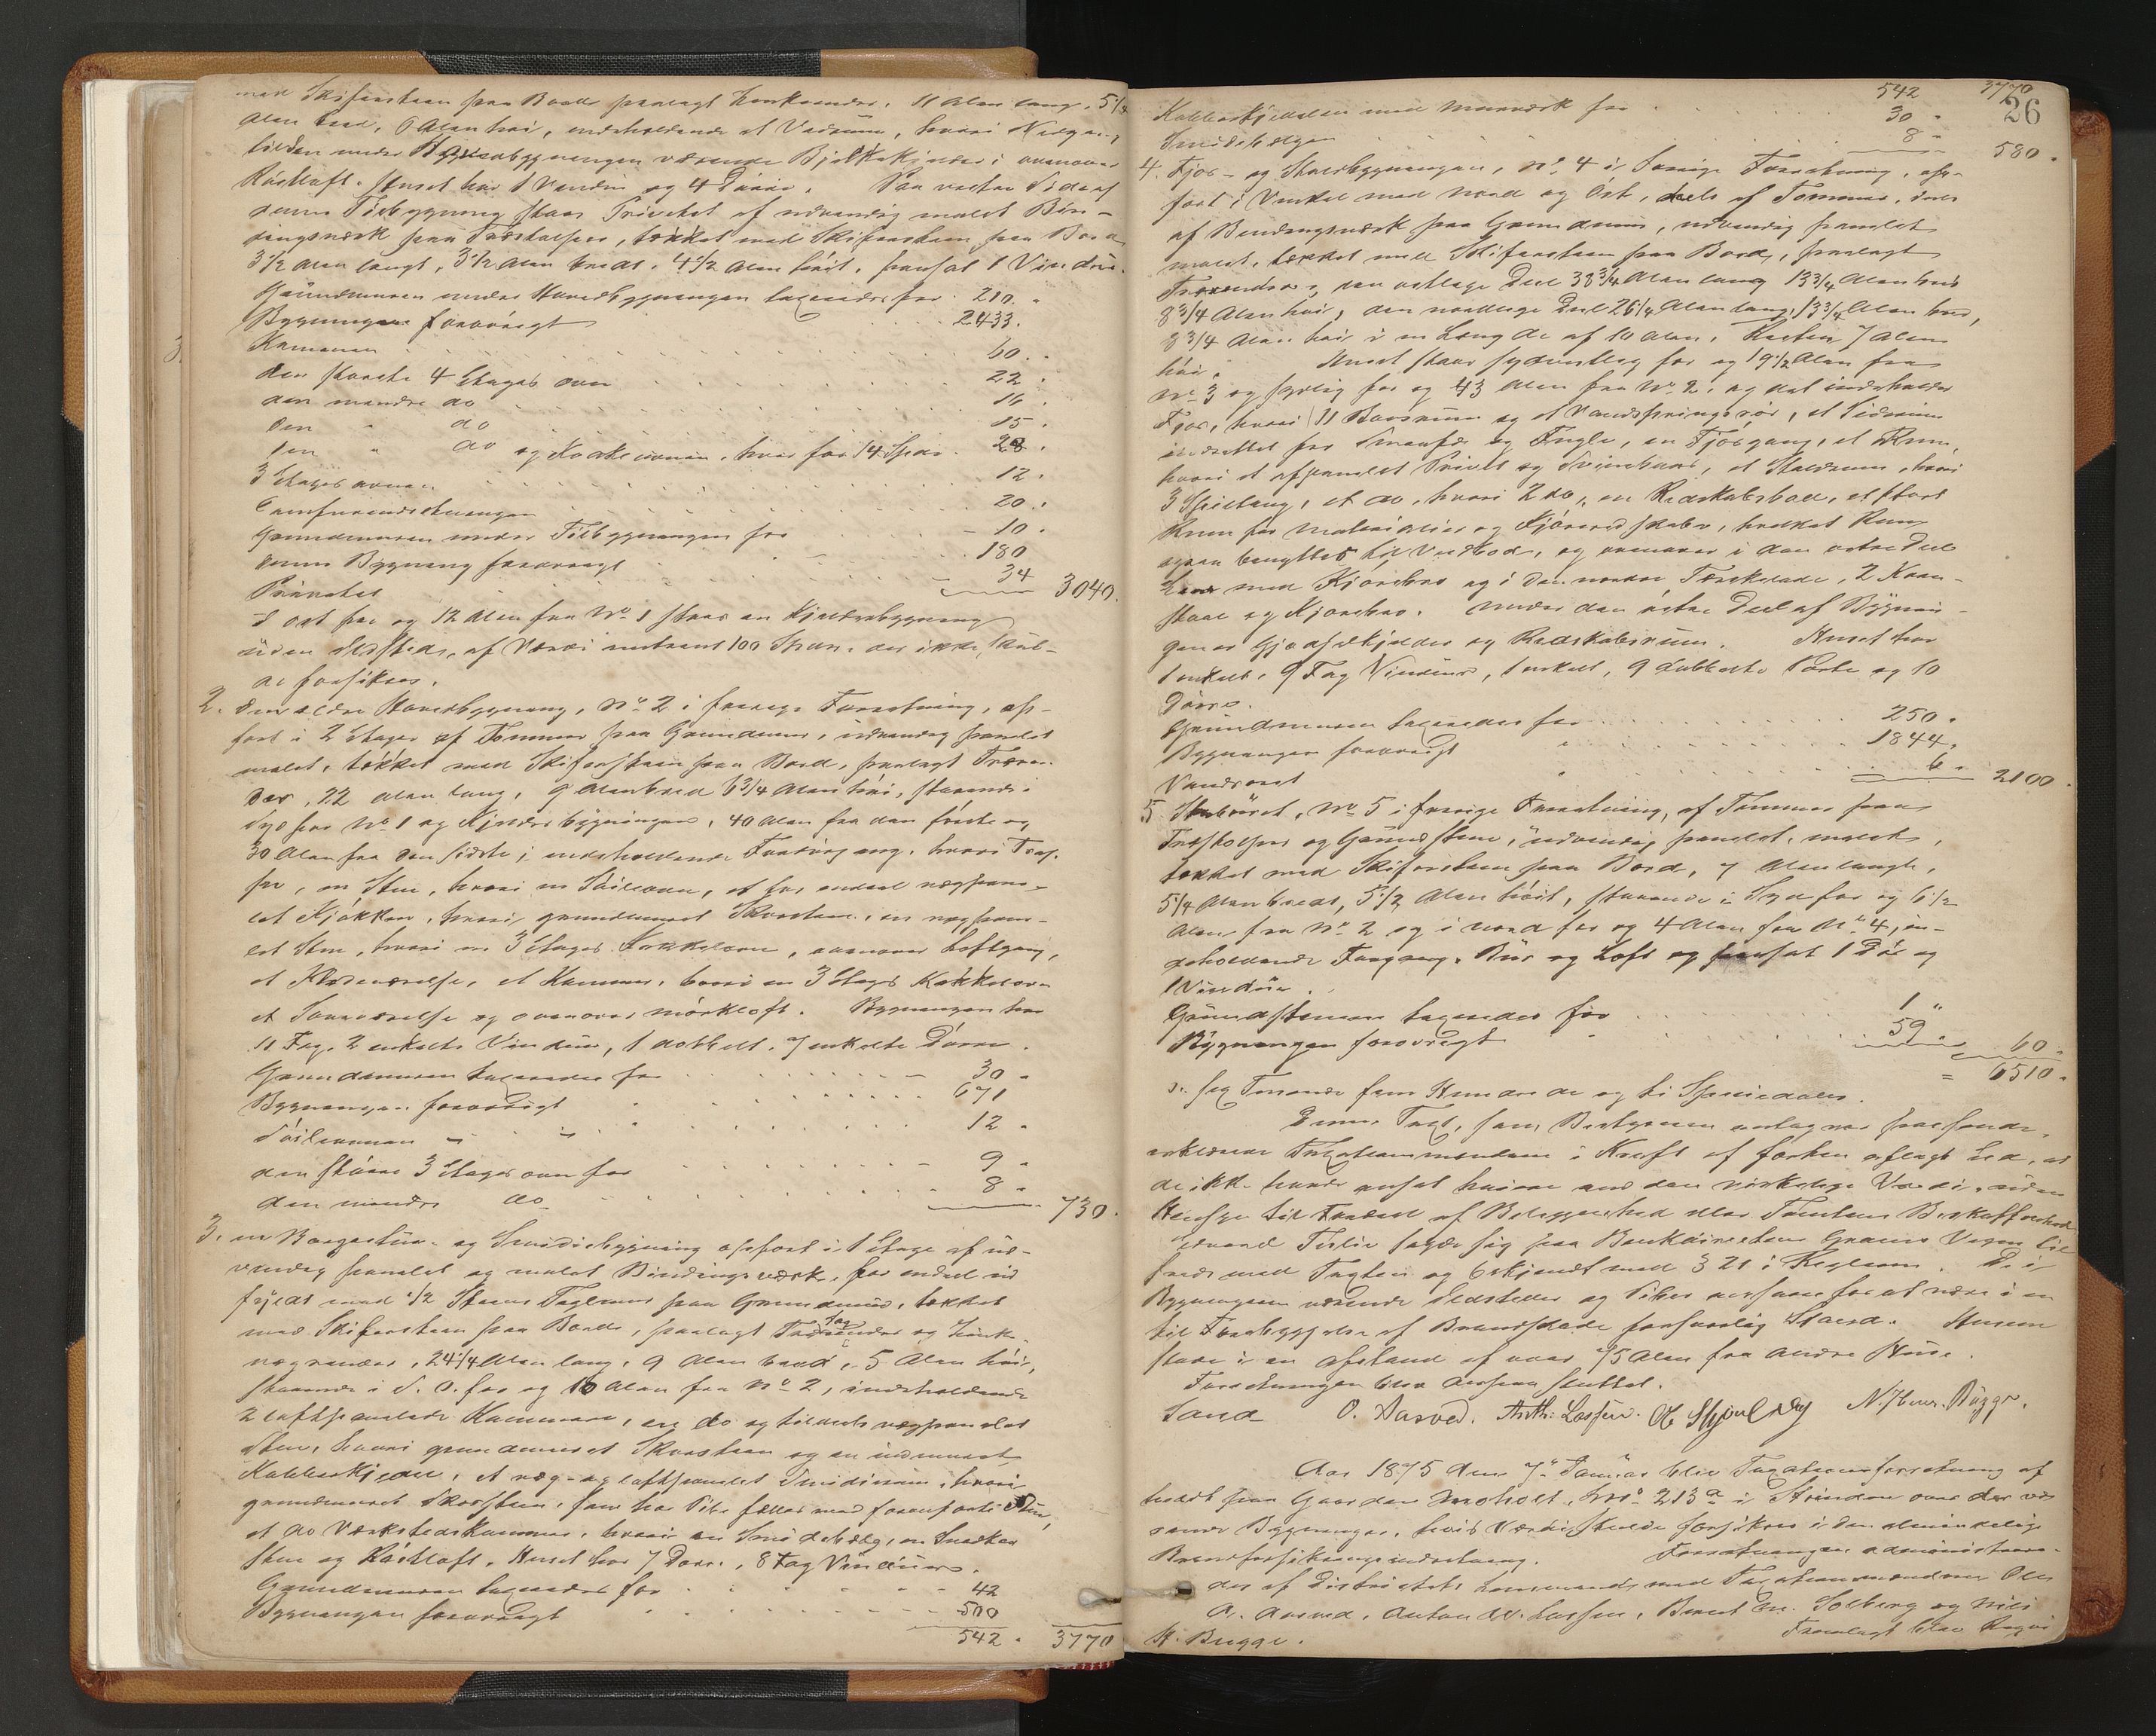 med Skifersteen paa Bord paalagt Zinkrender, 11 Alen lang, 5 1/4
Alen bred, 6 Alen høi, indeholdende et Vedrum, hvori Nedgang
til den under Hovedbygningen værende Bjelkekjelder, ovenover
Røstloft. Huset har 1 Vindue og 4 Dørre. Paa vestre Side af
denne Tilbygning staar Privetet af udvendig malet Bin-
dingsværk paa Træstolper, tækket med Skifersteen paa Bord
3 1/2 Alen langt, 3 1/2 Alen bredt, 4 1/2 Alen høit, paasat 1 Vindue.
Grundmuren under Hovedbygningen taxeredes for 210.
Bygningen forøvrigt 2433.
Kaminen 60.
den største 4 Etages ovn 22.
den mindre do 16
den " do 15.
den " do og Kakkelovnen, hver for 14 Spd. 28.
3 Etages ovnen 12.
Comfurindretningen 20.
Grundmuren under Tilbygningen for 10.
denne Bygning forøvrigt 180
Privetet 34 3040.
I Øst for og 12 Alen fra No 1 staar en Kjelderbygning
uden Ildsteder, af Værdi omtrent 100 Spdr. der ikke skul-
de forsikres.
2. Den ældre Hovedbygning, No 2 i forrige Forretning, op-
ført i 2 Etager af Tømmer paa Grundmur, udvendig panelet
malet, tækket med Skifersteen paa Bord, paalagt Træren-
der, 22 Alen lang, 9 Alen bred 6 3/4 Alen høi, staaende i
Syd for No 1 og Kjelderbygningen, 40 Alen fra den første og
30 Alen fra den sidste, indeholdende Forstugang, hvori Trap-
pe, en Stue, hvori en Søileovn, et for endeel vægpane-
let Kjøkken, hvori grundmuret Skorsteen, en vægpane-
let Stue, hvori en 3 Etages Kakkelovn, ovenover Loftgang,
et Madværelse, et Kammer, hvori en 3 Etages Kakkelovn
et Soveværelse og ovenover mørkloft. Bygningen har
11 Fag, 2 enkelte Vinduer, 1 dobbelt, 7 enkelte Dørre.
Grundmuren taxeredes for 30
Bygningen forøvrigt 671
Søileovnen 12
den større 3 Etages ovn for 9
den mindre do 8 730.
3. en Borgestue- og Smidiebygning opført i 1 Etage af ud-
vendig panelet og malet Bindingsværk, for endeel ud
fyldt med 1/2 Steens Teglmur paa Grundmur, tækket
med Skifersteen paa Bord, paalagt Tagrender og Zink-
vægrender, 24 1/4 Alen lang, 9 Alen bred, 5 Alen høi,
staaende i S. O. for og 10 Alen fra No 2, indeholdende
2 loftpanelede Kammere, en do og tildeels vægpanelet
Stue, hvori grundmuret Skorsteen og en indmuret
Kobberkjedel, et væg- og loftpanelet Smidierum, hvori
grundmuret Skorsteen, som har Pibe fælles med førenførte Stue,
et do Værkstedskammer, hvori en Smidebælg, en Snedker
Stue og Røstloft. Huset har 7 Dørre, 8 Fag Vinduer.
Grundmuren taxeredes for 42
Bygningen forøvrigt 500
542. 3770
26
542 3770
Kobberkjedelen med Murværk for 30
Smidiebælgen 8 580.
4. Fjøs- og Staldbygningen, No 4 i forrige Forretning, op-
ført i Vinkel mod Nord og Øst, deels af Tømmer, deels
af Bindingsværk paa Grundmur, udvendig panelet
malet, tækket med Skifersteen paa Bord, paalagt
Trærender, den østlige Deel 38 3/4 Alen lang 13 3/4 Alen bred
8 3/4 Alen høi, den nordlige Deel 26 1/4 Alen lang, 13 3/4 Alen bred,
8 3/4 Alen høi i en Længde af 10 Alen, Resten 7 Alen
høi. Huset staar sydøstlig for og 19 1/2 Alen fra
No 3 og sydlig for og 43 Alen fra No 2, og det indeholder
Fjøs, hvori 11 Baasrum og et Vandspringsrør, et Siderum
indrettet for Smaafæ og Fugle, en Fjøsgang, et Rum,
hvori et afpanelet Privet og Svinehuus, et Staldrum, hvori
3 Spiltoug, et do, hvori 2 do, en Redskabsbod, et stort
Rum for Materialier og Kjøreredskaber, hvilket Rum
ogsaa benyttes til Vedbod, og ovenover i den østre Deel
Lave med Kjørebro og i den nordre Tærskelade, 2 Korn-
stale og Kjørebro. Under den østre Deel af Bygnin-
gen er Gjødselkjelder og Redskabsrum. Huset har
1 enkelt, 9 Fag Vinduer, 1 enkelt, 9 dobbelte Porte og 10
Dørre.
Grundmuren taxeredes for 250.
Bygningen forøvrigt 1844.
Vandrøret 6 2100.
5. Stabburet, No 5 i forrige Forretning, af Tømmer paa
Træstolper og Grundstene, udvendig panelet, malet,
tækket med Skifersteen paa Bord, 7 Alen langt,
5 1/4 Alen bredt, 5 1/2 Alen høit, staaende i Syd for og 6 1/2
Alen fra No 2 og i Nord for og 4 Alen fra No 4, in-
deholdende Forgang, Bur og Loft og paasat 1 Dør og
1 Vindue.
Grundstenene taxeredes for 1
Bygningen forøvrigt 59 60.
= 6510.
er: Sex Tusende fem Hundrede og ti Speciedaler.
Denne Taxt, som Bestyreren antog var passende,
erklærede Taxationsmændene i Kraft af forhen aflagt Eed, at
de ikke havde ansat høiere end den virkelige Værdi, uden
Hensyn til Fordeel af Beliggenhed eller Tomtens Beskaffenhed
Edvard Tislie sagde sig paa Bankdirecteur Grams Vegne til-
freds med Taxten og bekjendt med § 21 i Reglerne. De i
Bygningerne værende Ildsteder og Piber ansaaes for at være i en
til Forebyggelse af Brandskade forsvarlig Stand. Husene
staae i en Afstand af over 75 Alen fra andre Huse.
Forretningen blev dermed sluttet.
Sand O. Aasved. Anth: Lossius. N. Henr. Bugge.
Aar 1875 den 7de Januar blev Taxationsforretning af
holdt paa Gaarden Moholt, No 213 a i Strinden over der væ
rende Bygninger, hvis Værdi skulde forsikres i den almindelige
Brandforsikringsindretning. Forretningen administrere-
des af Districtets Lensmand med Taxationsmændene Ole
A. Aasved, Anton W. Lossius, Bernt M. Solberg og Nils
H. Bugge. Fremlagt blev Reqvi